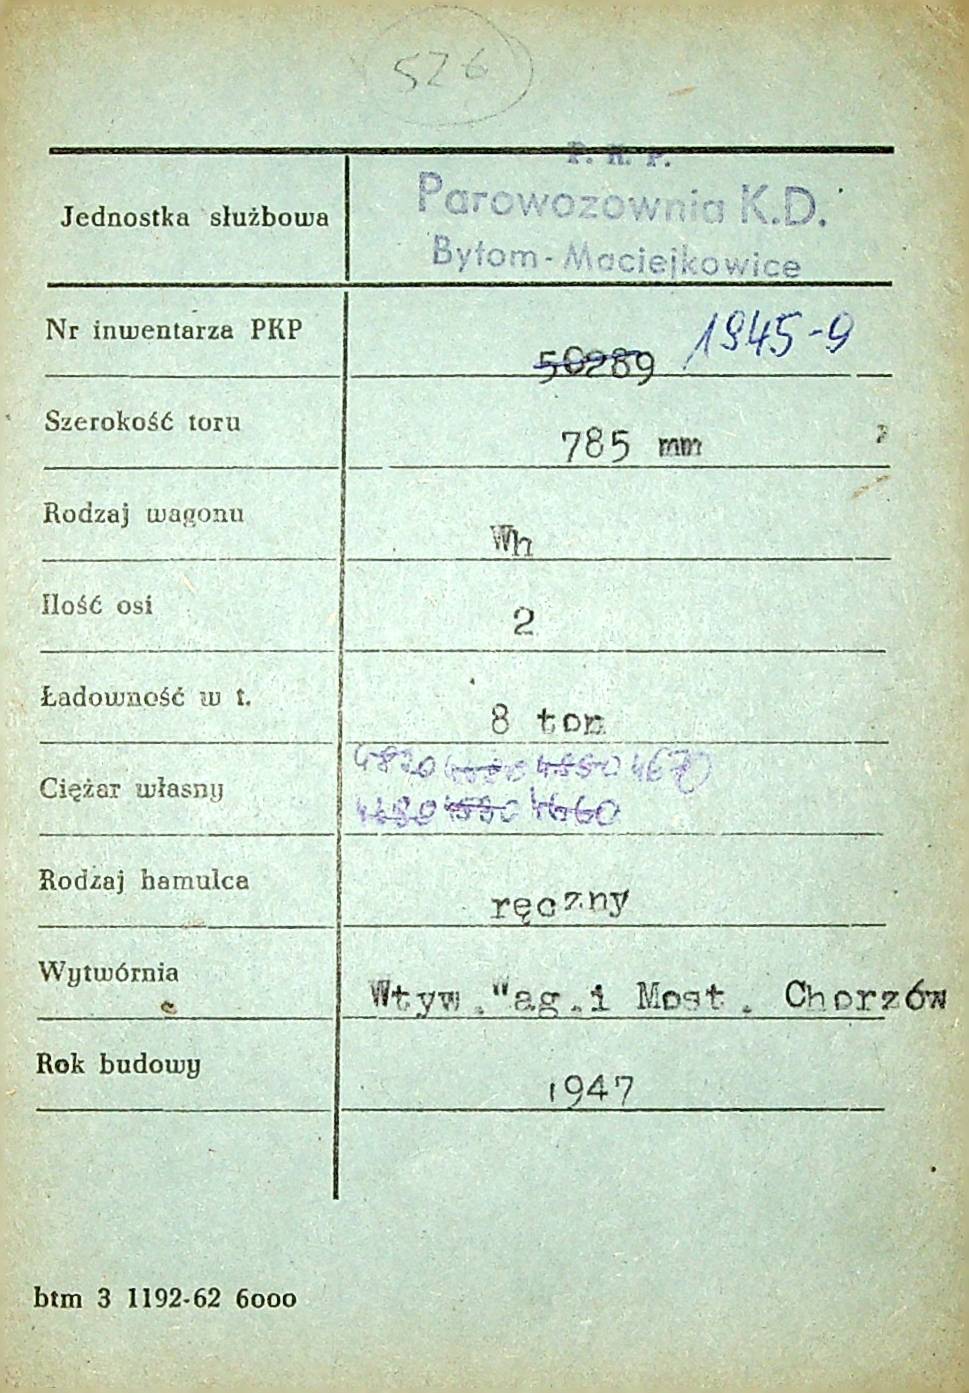 526
P. K. P.
Parowozownia K.D.
Jednostka służbowa
Bytom-Maciejkowice
Nr inwentarza PKP 50289 1945-9
Szerokość toru 785 mm
Rodzaj wagonu Wh
Ilość osi 2
Ładowność w t. 8 ton
4820 4550 4670
Ciężar własny
4660
Rodzaj hamulca ręczny
Wytwórnia Wtyw."ag.i Most. Chorzów
Rok budowy 1947
btm 3 1192-62 6000